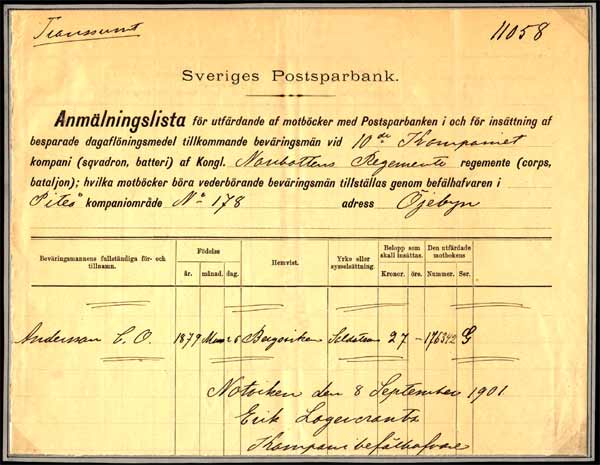 Transsumt 11058
Sveriges Postsparbank.
Anmälningslista för utfärdande af motböcker med Postsparbanken i och för insättning af
besparade dagaflöningsmedel tillkommande beväringsmän vid 10de Kompaniet
kompani (sqvadron, batteri) af Kongl. Norrbottens Regemente regemente (corps,
bataljon); hvilka motböcker böra vederbörande beväringsmän tillställas genom befälhafvaren i
Piteå kompaniområde No 178 adress Öjebyn
Beväringsmannens fullständiga för- och tillnamn. Födelse år. månad. dag. Hemvist. Yrke eller sysselsättning. Belopp som skall insättas. Kronor. öre. Den utfärdade motbokens Nummer. Ser.
Andersson C. O. 1879 26 Bergsviken 27 – 176342 G
Notviken den 8 September 1901.
Erik Lagercrantz
Kompanibefälhafvare